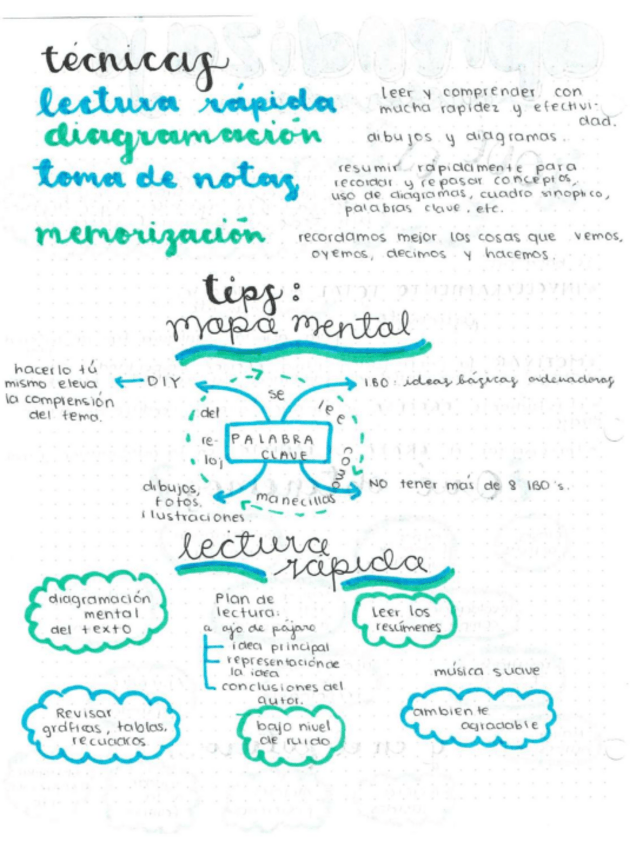 técnicas
lectura rápida
leer y comprender con
mucha rapidez y efectivi-
dad.
diagramación
dibujos y diagramas.
toma de notas
resumir rápidamente para
recordar y repasar conceptos,
uso de diagramas, cuadro sinoptico,
palabras clave, etc.
memorización
recordamos mejor las cosas que vemos,
oyemos, decimos y hacemos.
tips:
mapa mental
hacerlo tú
mismo eleva
la comprensión
del tema.
DIY
IBO: ideas básicas ordenadoras
se lee como manecillas del re-loj
PALABRA
CLAVE
dibujos,
fotos,
ilustraciones.
NO tener más de 8 IBO's.
lectura
rápida
diagramación
mental
del texto
Plan de
lectura:
a ojo de pájaro
idea principal
representación de
la idea
conclusiones del
autor.
Leer los
resúmenes
música suave
Revisar
gráficas, tablas,
recuadros.
bajo nivel
de ruido
ambiente
agradable